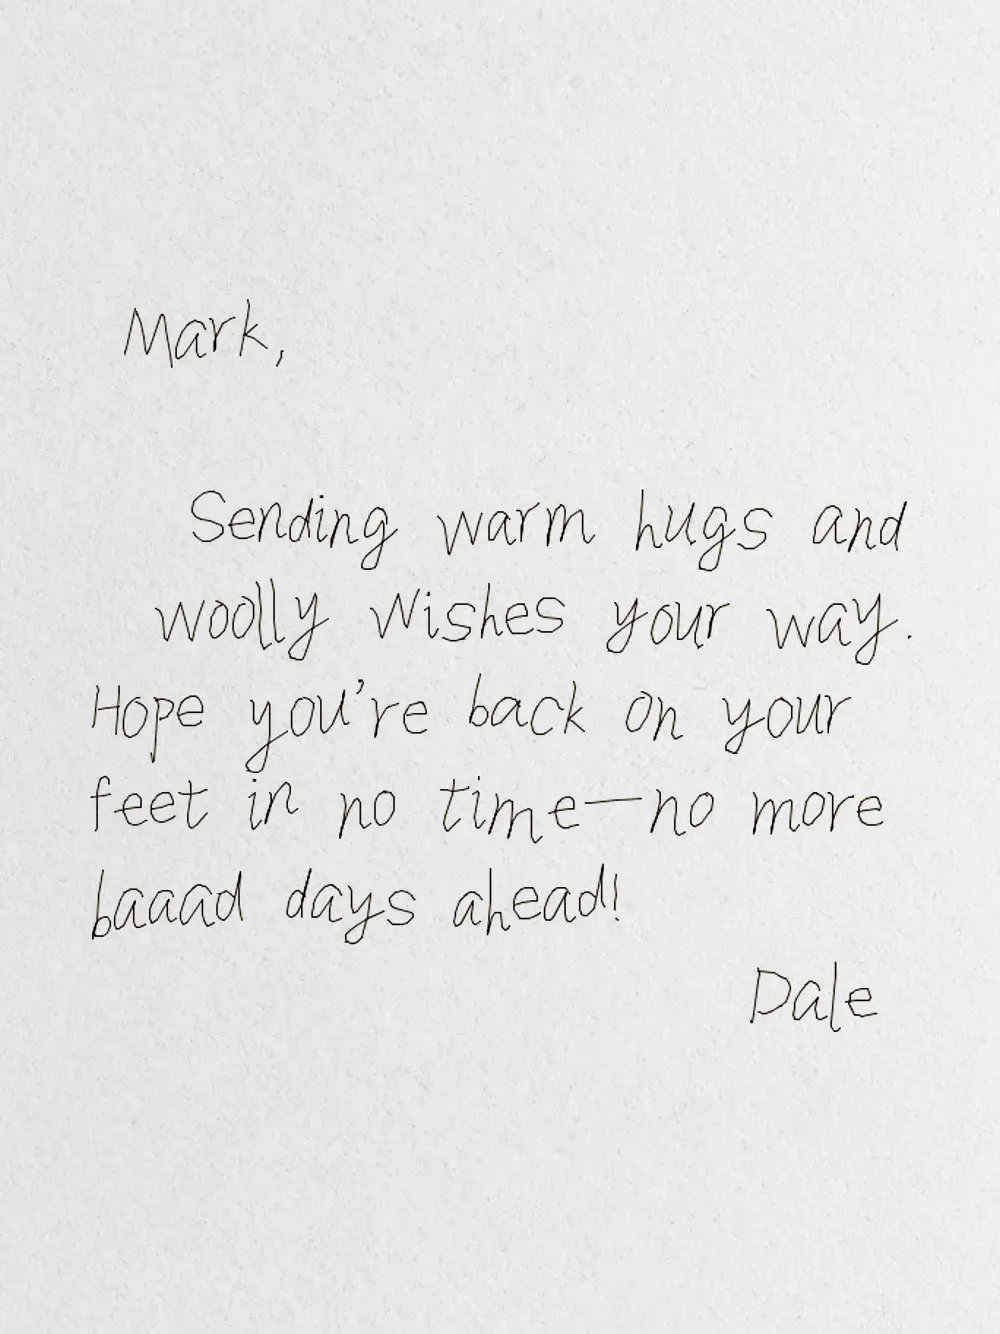 Mark,
Sending warm hugs and
woolly wishes your way.
Hope you're back on your
feet in no time—no more
baaad days ahead!
Dale